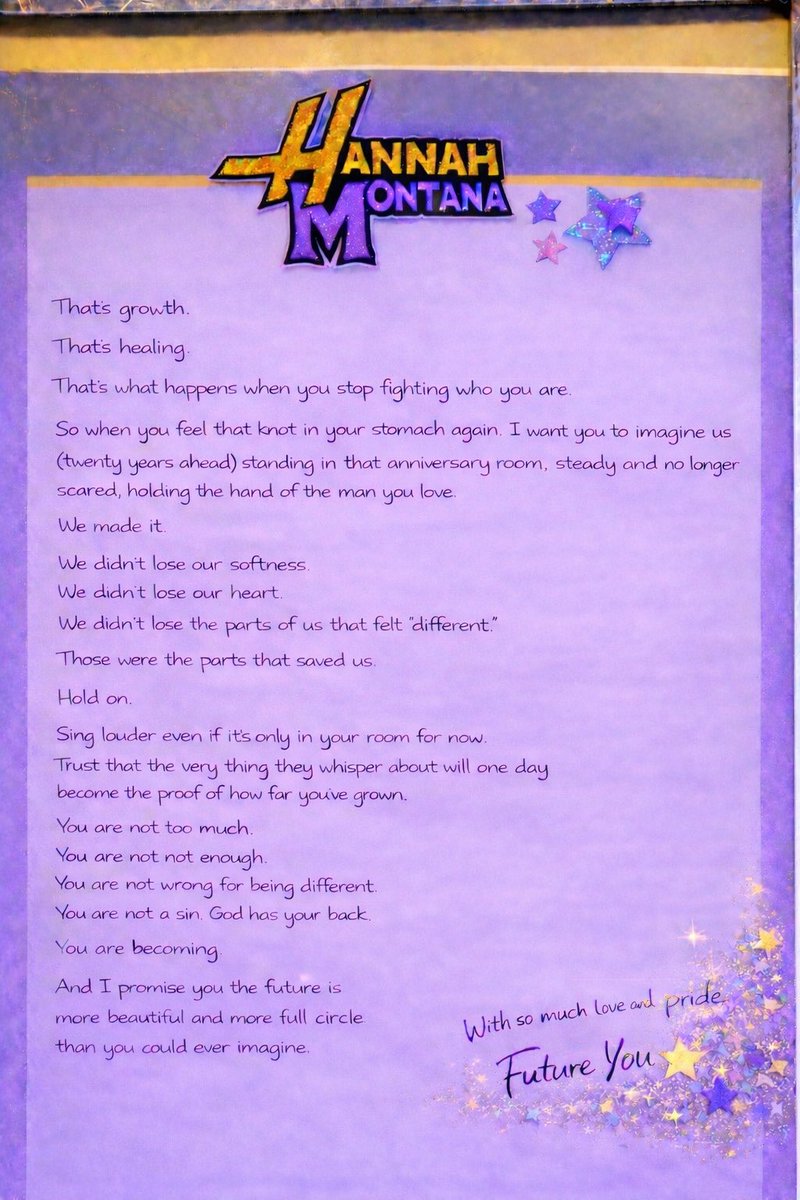 HANNAH
MONTANA
That's growth.
That's healing.
That's what happens when you stop fighting who you are.
So when you feel that knot in your stomach again. I want you to imagine us
(twenty years ahead) standing in that anniversary room, steady and no longer
scared, holding the hand of the man you love.
We made it.
We didn't lose our softness.
We didn't lose our heart.
We didn't lose the parts of us that felt "different."
Those were the parts that saved us.
Hold on.
Sing louder even if it's only in your room for now.
Trust that the very thing they whisper about will one day
become the proof of how far you've grown.
You are not too much.
You are not not enough.
You are not wrong for being different.
You are not a sin. God has your back.
You are becoming.
And I promise you the future is
more beautiful and more full circle
than you could ever imagine.
With so much love and pride
Future You